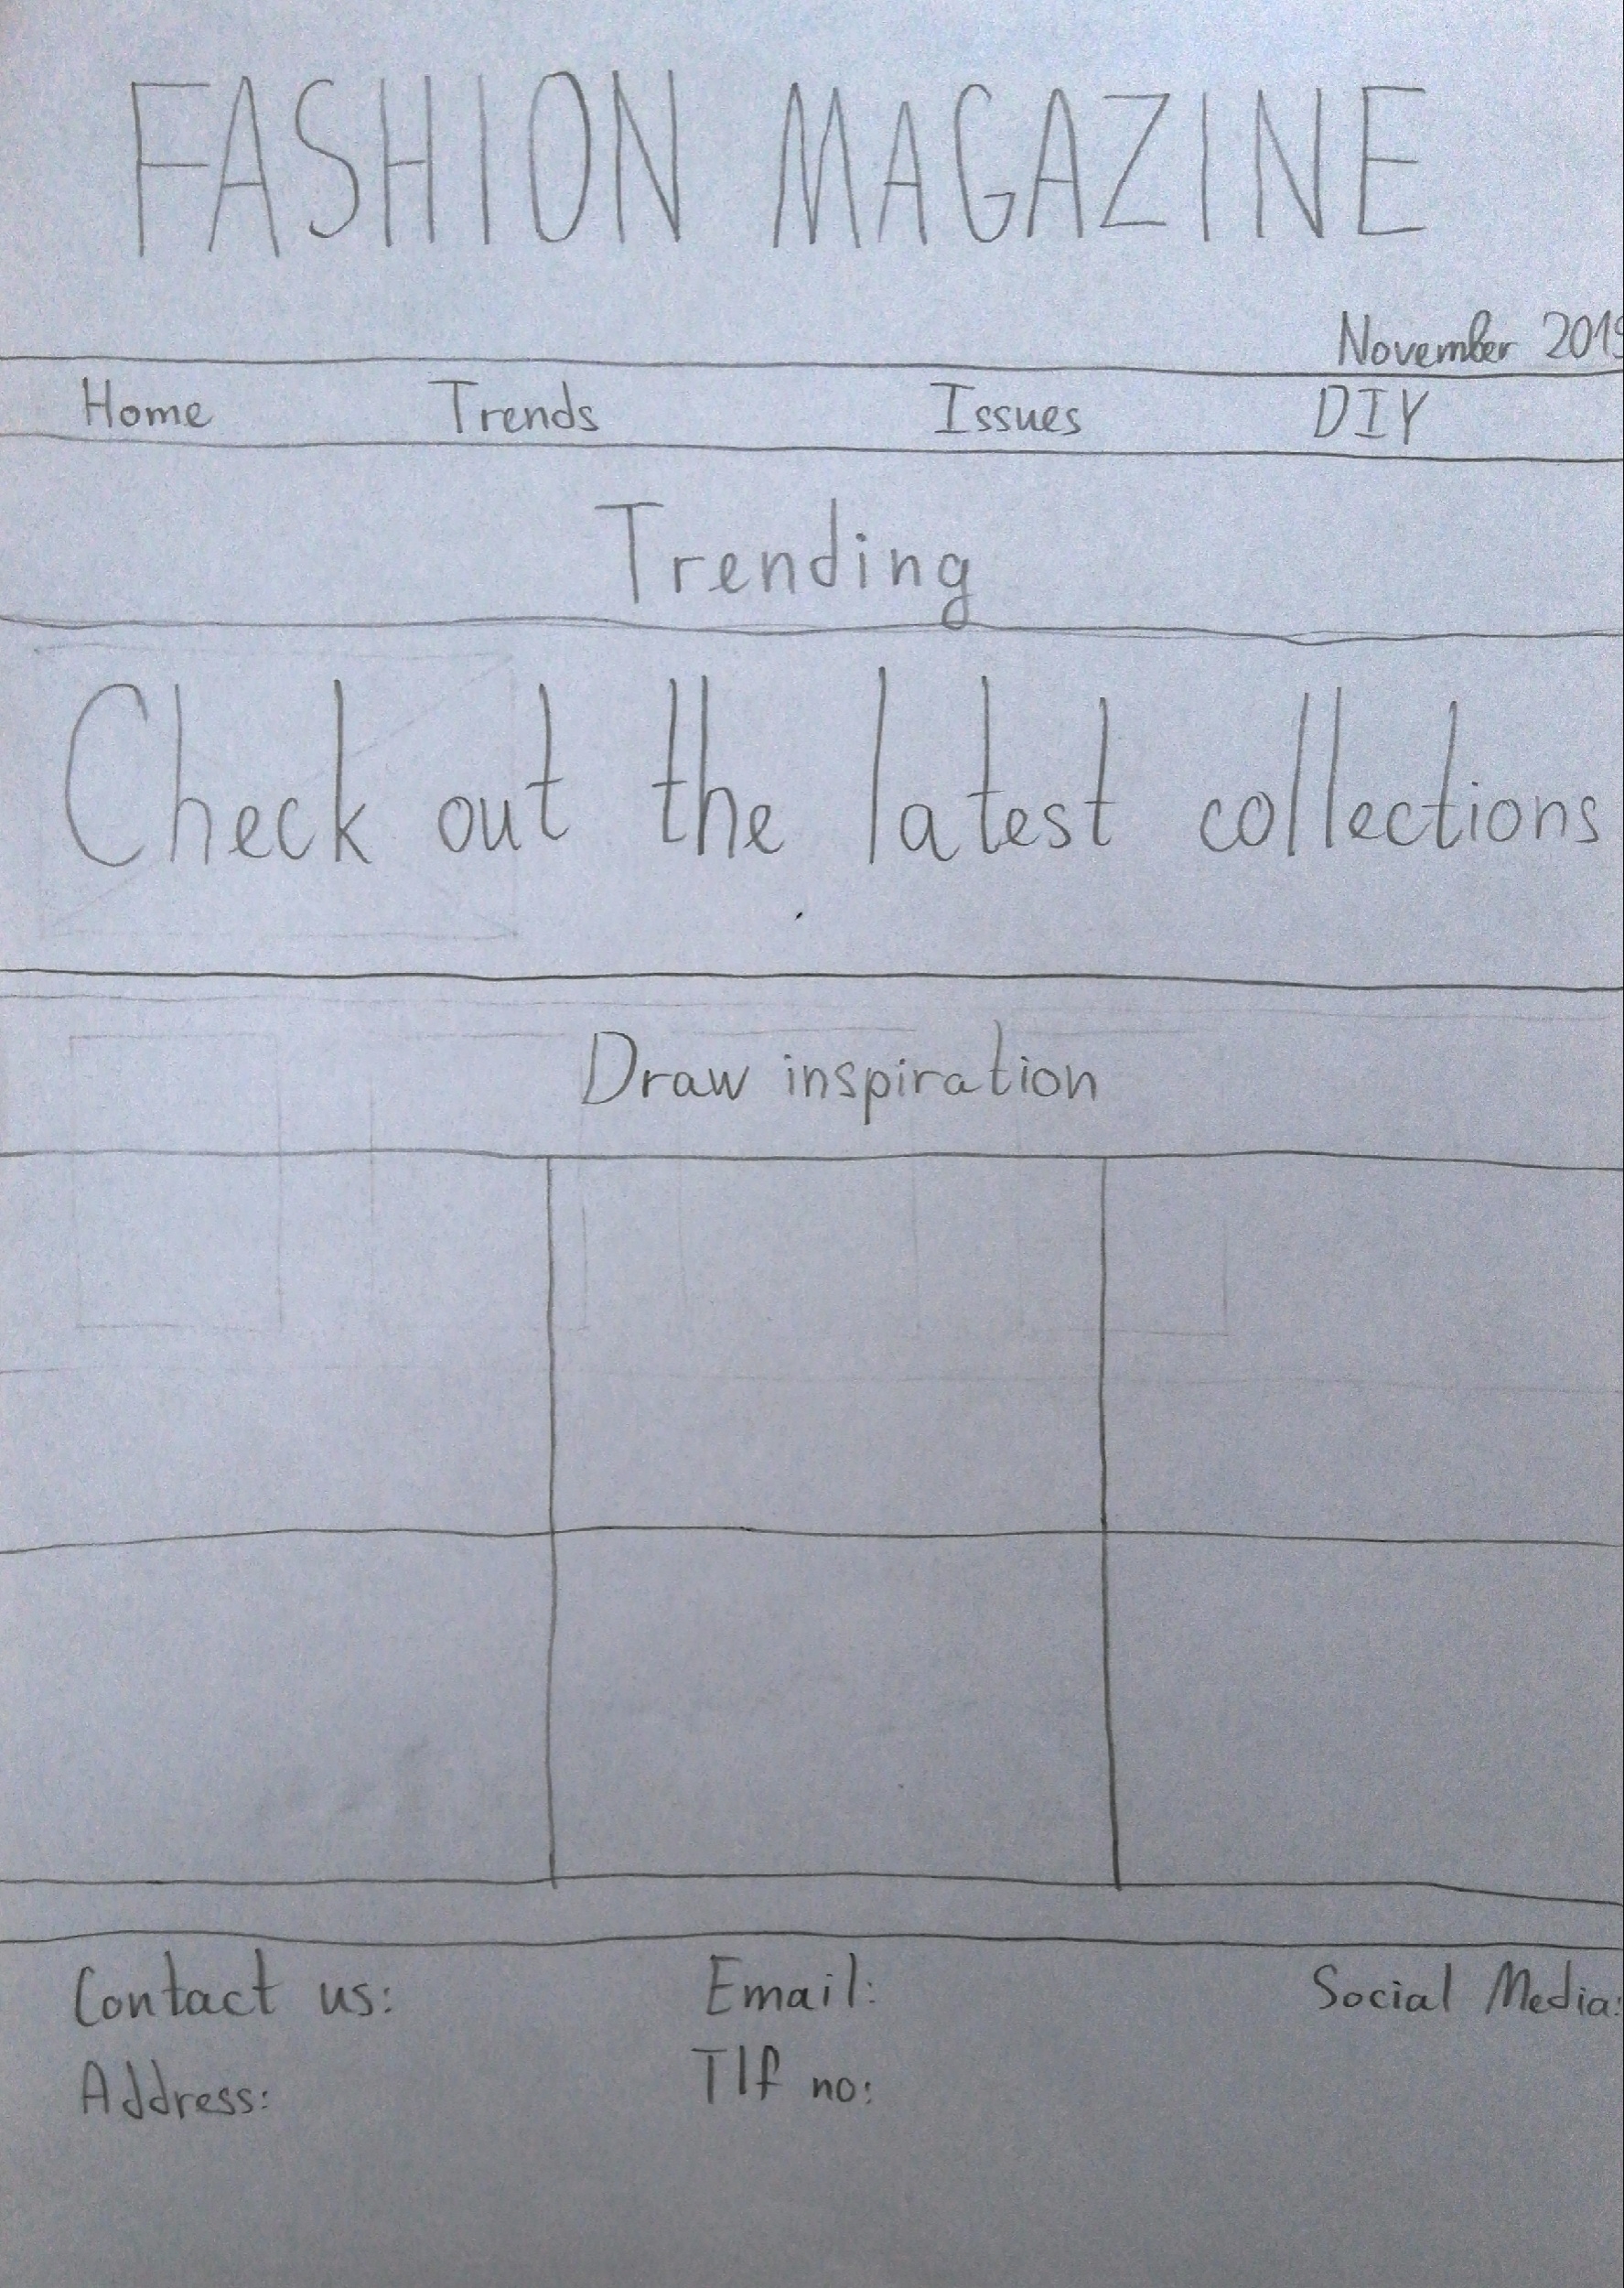 FASHION MAGAZINE
November
Home Trends Issues DIY
Trending
Check out the latest collections
Draw inspiration
Contact us: Email: Social Media:
Address: Tlf no: